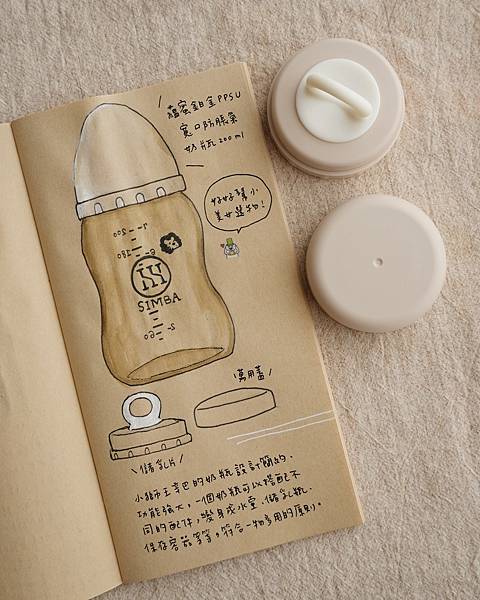 蘊蜜鉑金PPSU
寬口防脹氣
奶瓶 200ml
好好幫小
美女裝物!
7-200
6-180
SIMBA
2-60
萬用蓋
儲乳片
小獅王辛巴的奶瓶設計簡約、
功能強大，一個奶瓶可以搭配不
同的配件，變身成水壺、儲乳瓶、
保存容器等等，符合一物多用的原則。